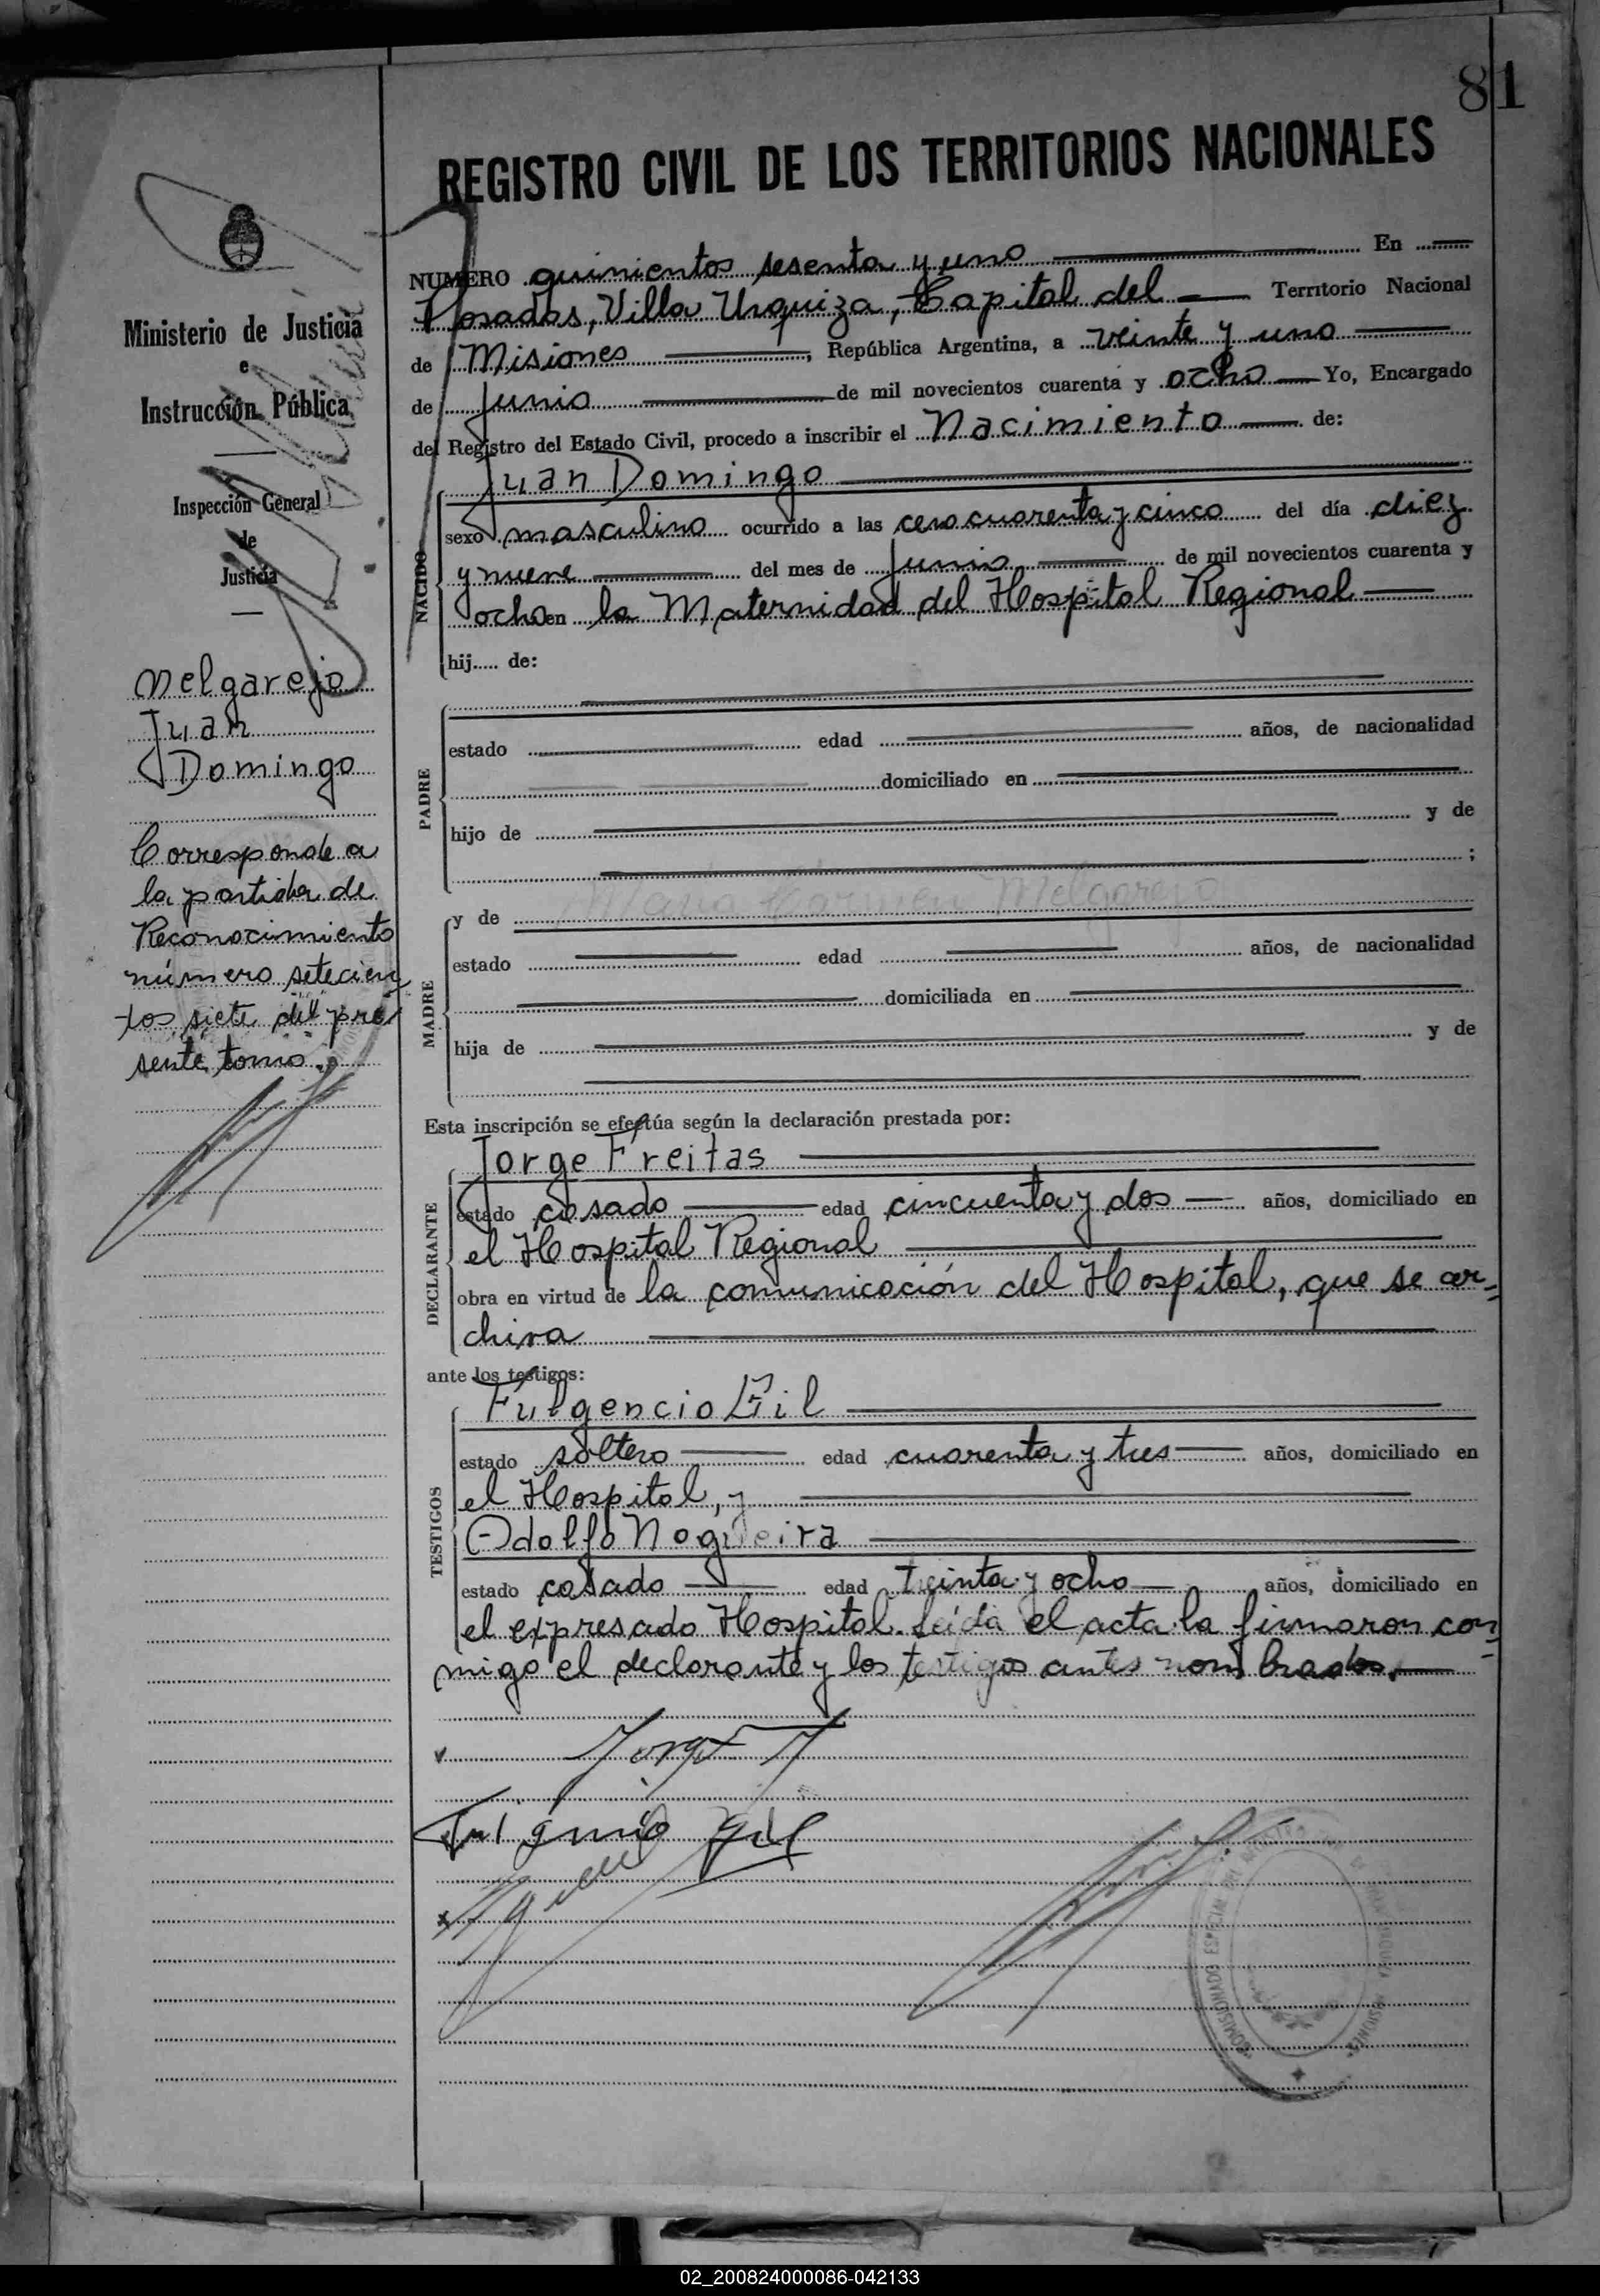 81
REGISTRO CIVIL DE LOS TERRITORIOS NACIONALES
Ministerio de Justicia
e
Instrucción Pública
Inspección General
de
Justicia
Melgarejo
Juan
Domingo
Corresponde a
la partida de
Reconocimiento
número setecien
tos siete del pre
sente tomo.
NUMERO quinientos sesenta y uno En
Posadas, Villa Urquiza, Capital del Territorio Nacional
de Misiones, República Argentina, a veinte y uno
de Junio de mil novecientos cuarenta y ocho Yo, Encargado
del Registro del Estado Civil, procedo a inscribir el Nacimiento de:
NACIDO
Juan Domingo
sexo masculino ocurrido a las cero cuarenta y cinco del día diez
y nueve del mes de Junio de mil novecientos cuarenta y
ocho en la Maternidad del Hospital Regional
hij..... de:
PADRE
estado edad años, de nacionalidad
domiciliado en
hijo de y de
;
MADRE
y de Maria Carmen Melgarejo
estado edad años, de nacionalidad
domiciliada en
hija de y de
Esta inscripción se efectúa según la declaración prestada por:
DECLARANTE
Jorge Freitas
estado casado edad cincuenta y dos años, domiciliado en
el Hospital Regional
obra en virtud de la comunicación del Hospital, que se ar-
chiva
ante los testigos:
TESTIGOS
Fulgencio Gil
estado soltero edad cuarenta y tres años, domiciliado en
el Hospital, y
Odolfo Nogueira
estado casado edad treinta y ocho años, domiciliado en
el expresado Hospital. Leída el acta la firmaron con-
migo el declarante y los testigos antes nombrados.
Jorge F
Fulgencio Gil
02_200824000086-042133